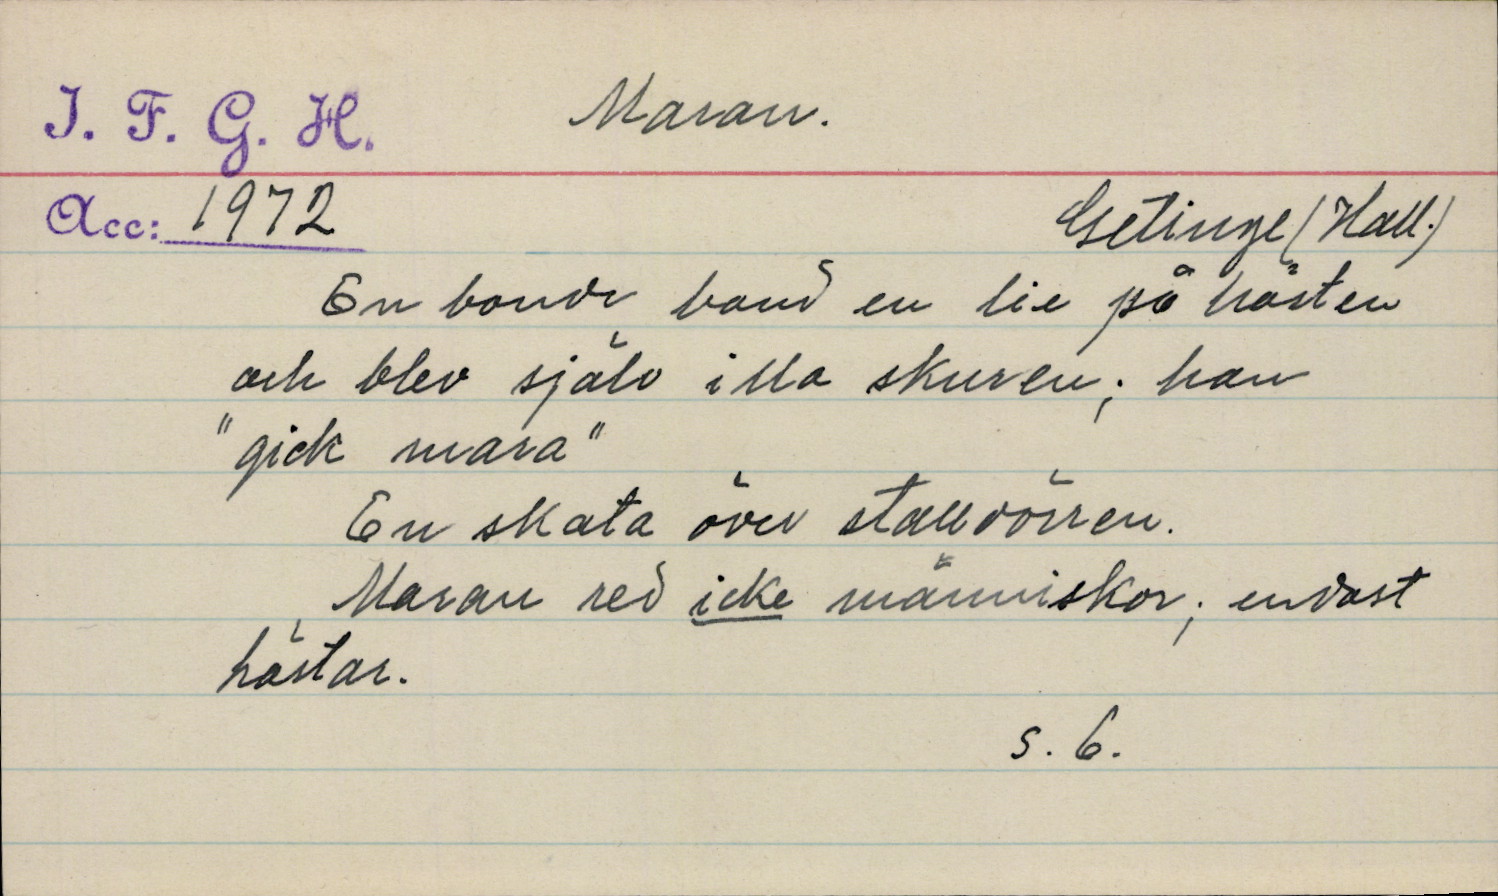 I. F. G. H.
Maran.
Acc: 1972
Getinge (Hall.)
En bonde band en lie på hästen
och blev själv illa skuren; han
"gick mara"
En skata över stalldörren.
Maran red icke människor; endast
hästar.
s. 6.